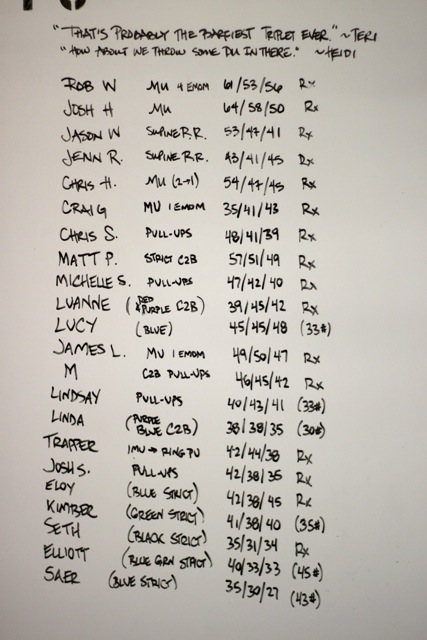 "THAT'S PROBABLY THE BARFIEST TRIPLET EVER." ~TERI
"HOW ABOUT WE THROW SOME DU IN THERE." ~HEIDI
ROB W MU 4 EMOM 61/53/56 Rx
JOSH H MU 64/58/50 Rx
JASON W SUPINE R.R. 53/47/41 Rx
JENN R. SUPINE R.R. 43/41/45 Rx
CHRIS H. MU (2→1) 54/47/45 Rx
CRAIG MU 1 EMOM 35/41/43 Rx
CHRIS S. PULL-UPS 48/41/39 Rx
MATT P. STRICT C2B 57/51/49 Rx
MICHELLE S. PULL-UPS 47/42/40 Rx
LUANNE (RED & PURPLE C2B) 39/45/42 Rx
LUCY (BLUE) 45/45/48 (33#)
JAMES L. MU 1 EMOM 49/50/47 Rx
M C2B PULL-UPS 46/45/42 Rx
LINDSAY PULL-UPS 40/43/41 (33#)
LINDA (PURPLE BLUE C2B) 38/38/35 (30#)
TRAPPER 1MU → RING PU 42/44/38 Rx
JOSH S. PULL-UPS 42/38/35 Rx
ELOY (BLUE STRICT) 42/38/45 Rx
KIMBER (GREEN STRICT) 41/38/40 (35#)
SETH (BLACK STRICT) 35/31/34 Rx
ELLIOTT (BLUE GRN STRICT) 40/33/33 (45#)
SAER (BLUE STRICT) 35/30/27 (43#)